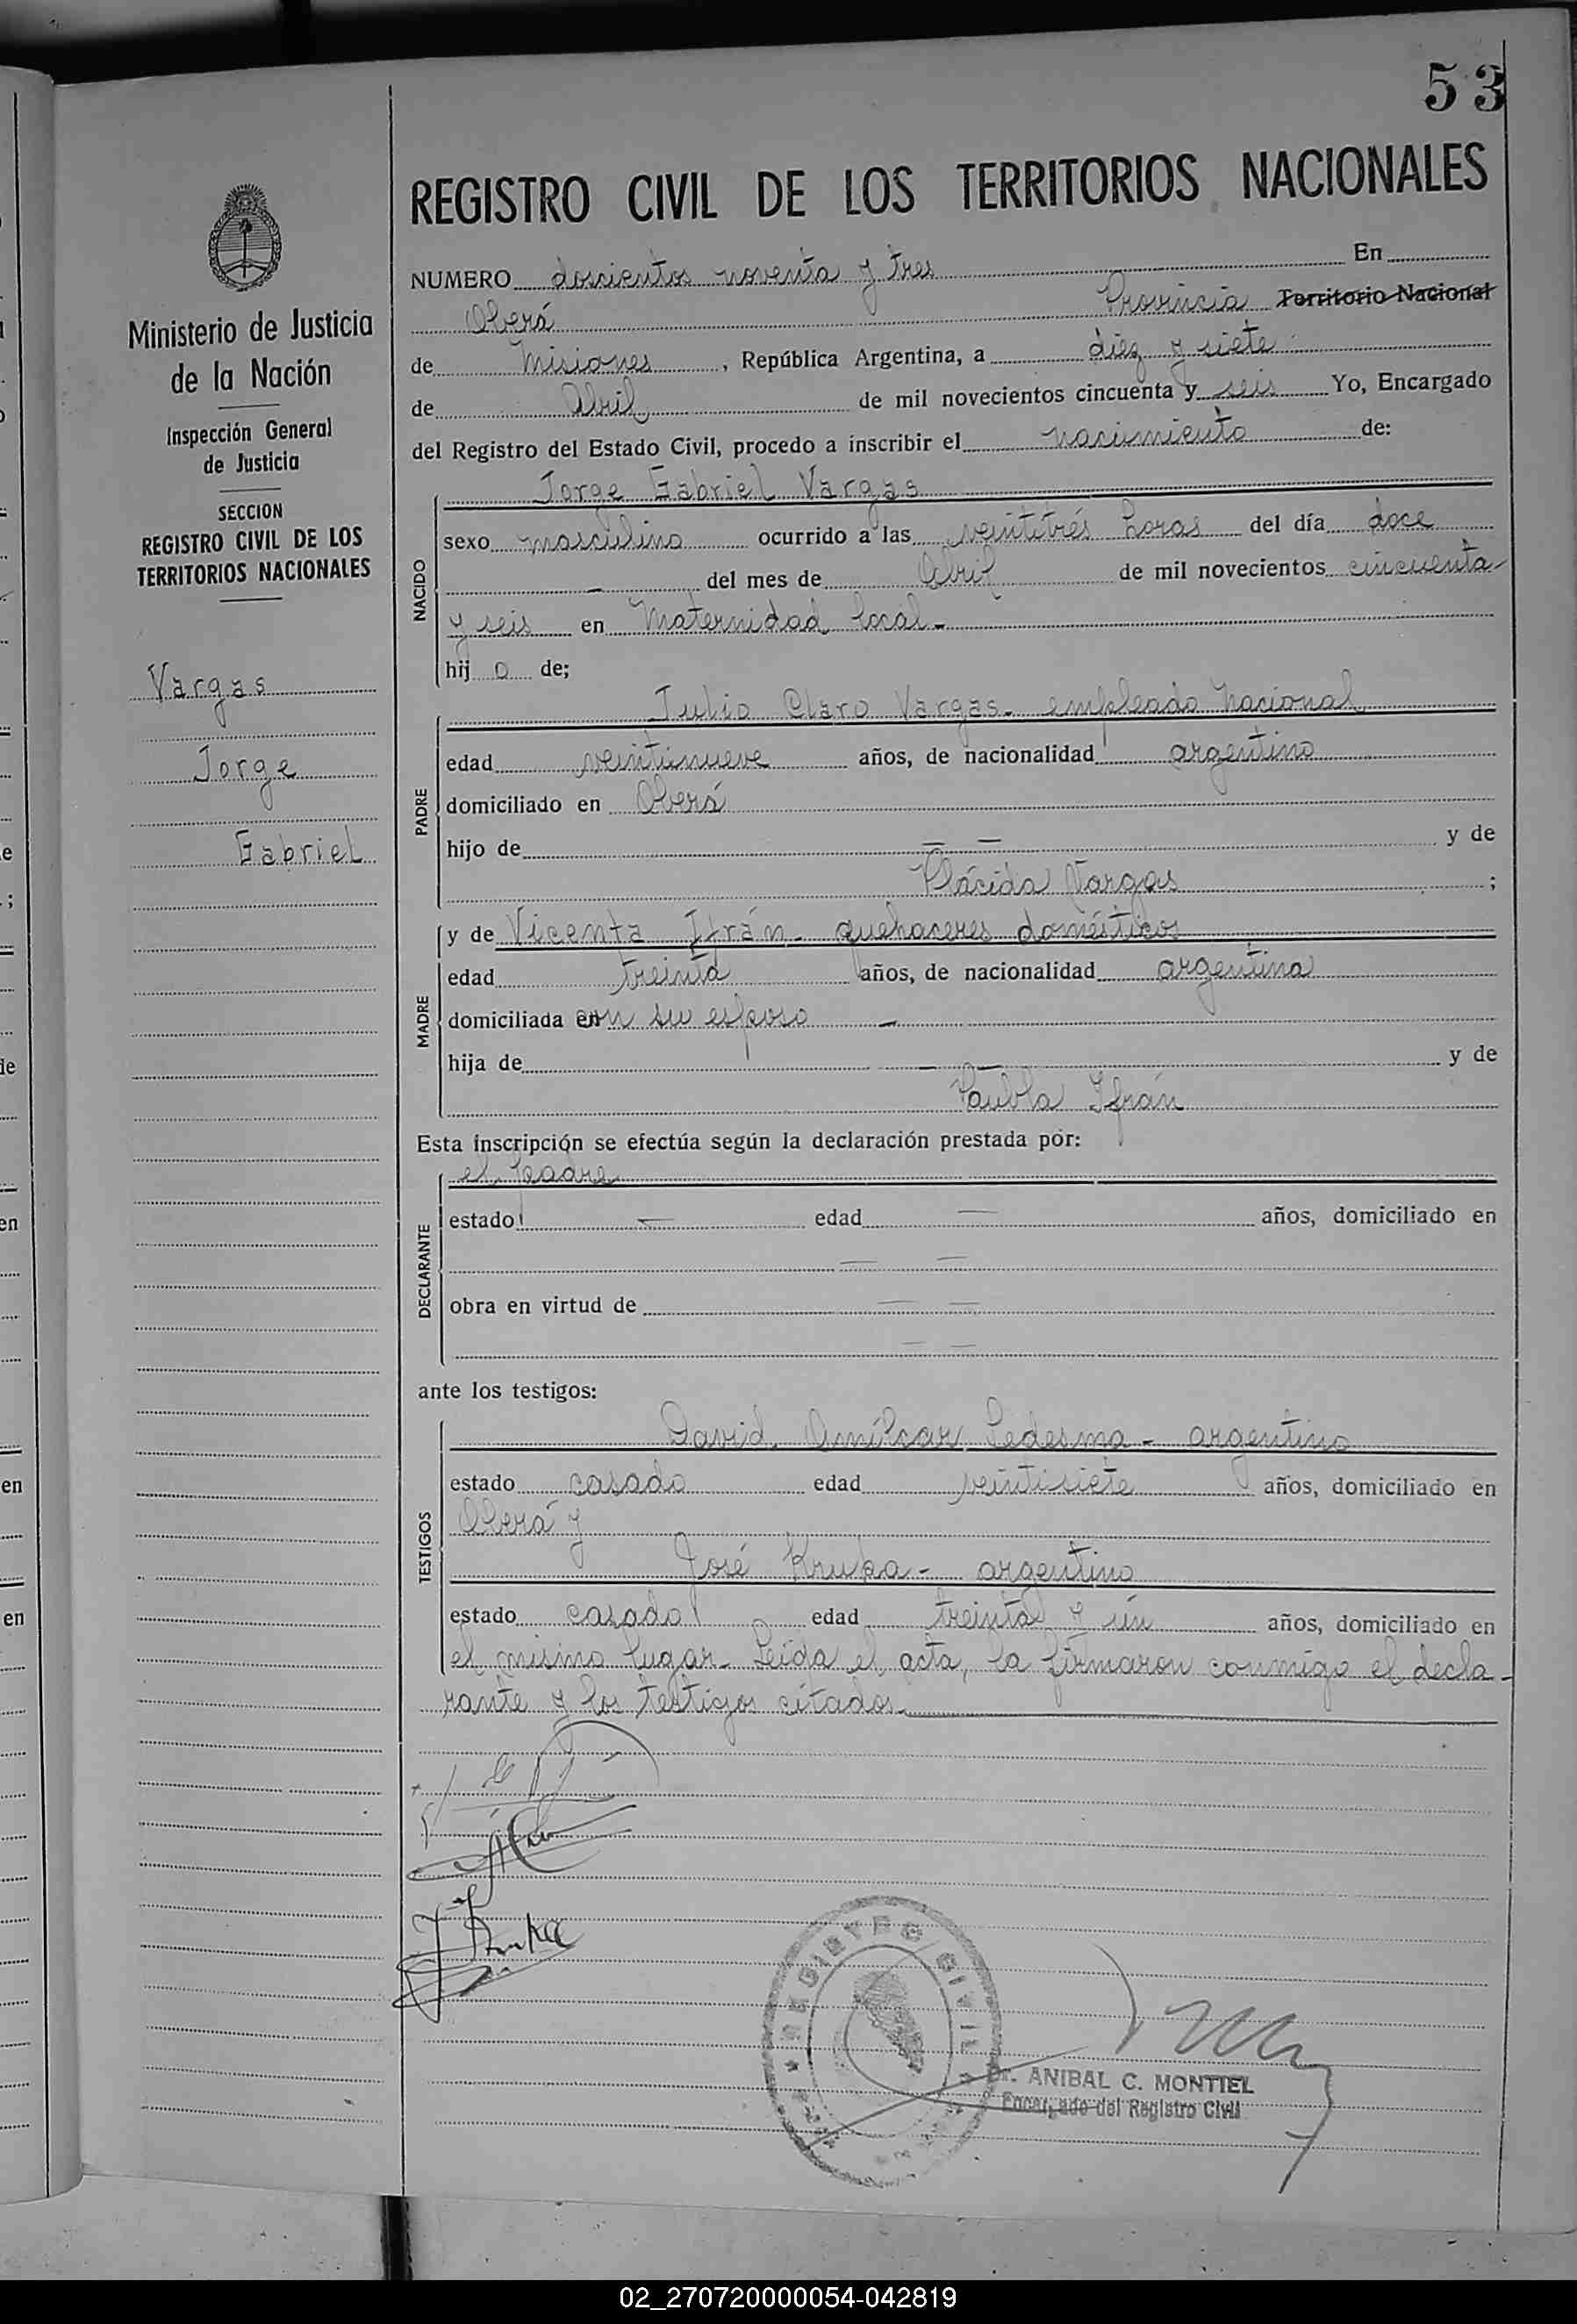 53
REGISTRO CIVIL DE LOS TERRITORIOS NACIONALES
Ministerio de Justicia
de la Nación
Inspección General
de Justicia
SECCION
REGISTRO CIVIL DE LOS
TERRITORIOS NACIONALES
Vargas
Jorge
Gabriel
NUMERO doscientos noventa y tres En
Oberá Provincia Territorio Nacional
de Misiones, República Argentina, a diez y siete
de Abril de mil novecientos cincuenta y seis Yo, Encargado
del Registro del Estado Civil, procedo a inscribir el nacimiento de:
NACIDO
Jorge Gabriel Vargas
sexo masculino ocurrido a las veintitrés horas del día doce
— del mes de Abril de mil novecientos cincuenta
y seis en Maternidad local -
hij o de;
PADRE
Julio Claro Vargas - empleado Nacional
edad veintinueve años, de nacionalidad argentino
domiciliado en Oberá
hijo de — — y de
Plácida Vargas ;
MADRE
y de Vicenta Ifrán - quehaceres domésticos
edad treinta años, de nacionalidad argentina
domiciliada en con su esposo —
hija de — — y de
Paubla Ifrán
Esta inscripción se efectúa según la declaración prestada por:
DECLARANTE
el padre
estado — edad — años, domiciliado en
— —
obra en virtud de — —
— —
ante los testigos:
TESTIGOS
David Amílcar Ledesma - argentino
estado casado edad veintisiete años, domiciliado en
Oberá y
José Kruka - argentino
estado casado edad treinta y un años, domiciliado en
el mismo lugar - Leída el acta, la firmaron conmigo el decla-
rante y los testigos citados.
J Kruka
REGISTRO CIVIL
Dr. ANIBAL C. MONTIEL
Encargado del Registro Civil
02_270720000054-042819